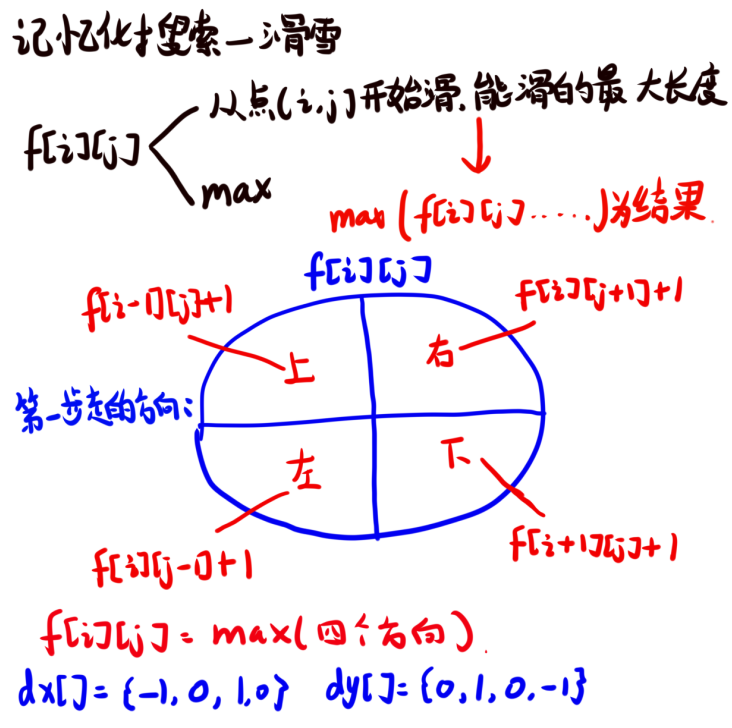 记忆化搜索—滑雪
从点(i,j)开始滑,能滑的最大长度
f[i][j]
max
max(f[i][j]......)为结果.
f[i][j]
f[i-1][j]+1
f[i][j+1]+1
上
右
第一步走的方向:
左
下
f[i][j-1]+1
f[i+1][j]+1
f[i][j] = max(四个方向).
dx[]={-1,0,1,0} dy[]={0,1,0,-1}